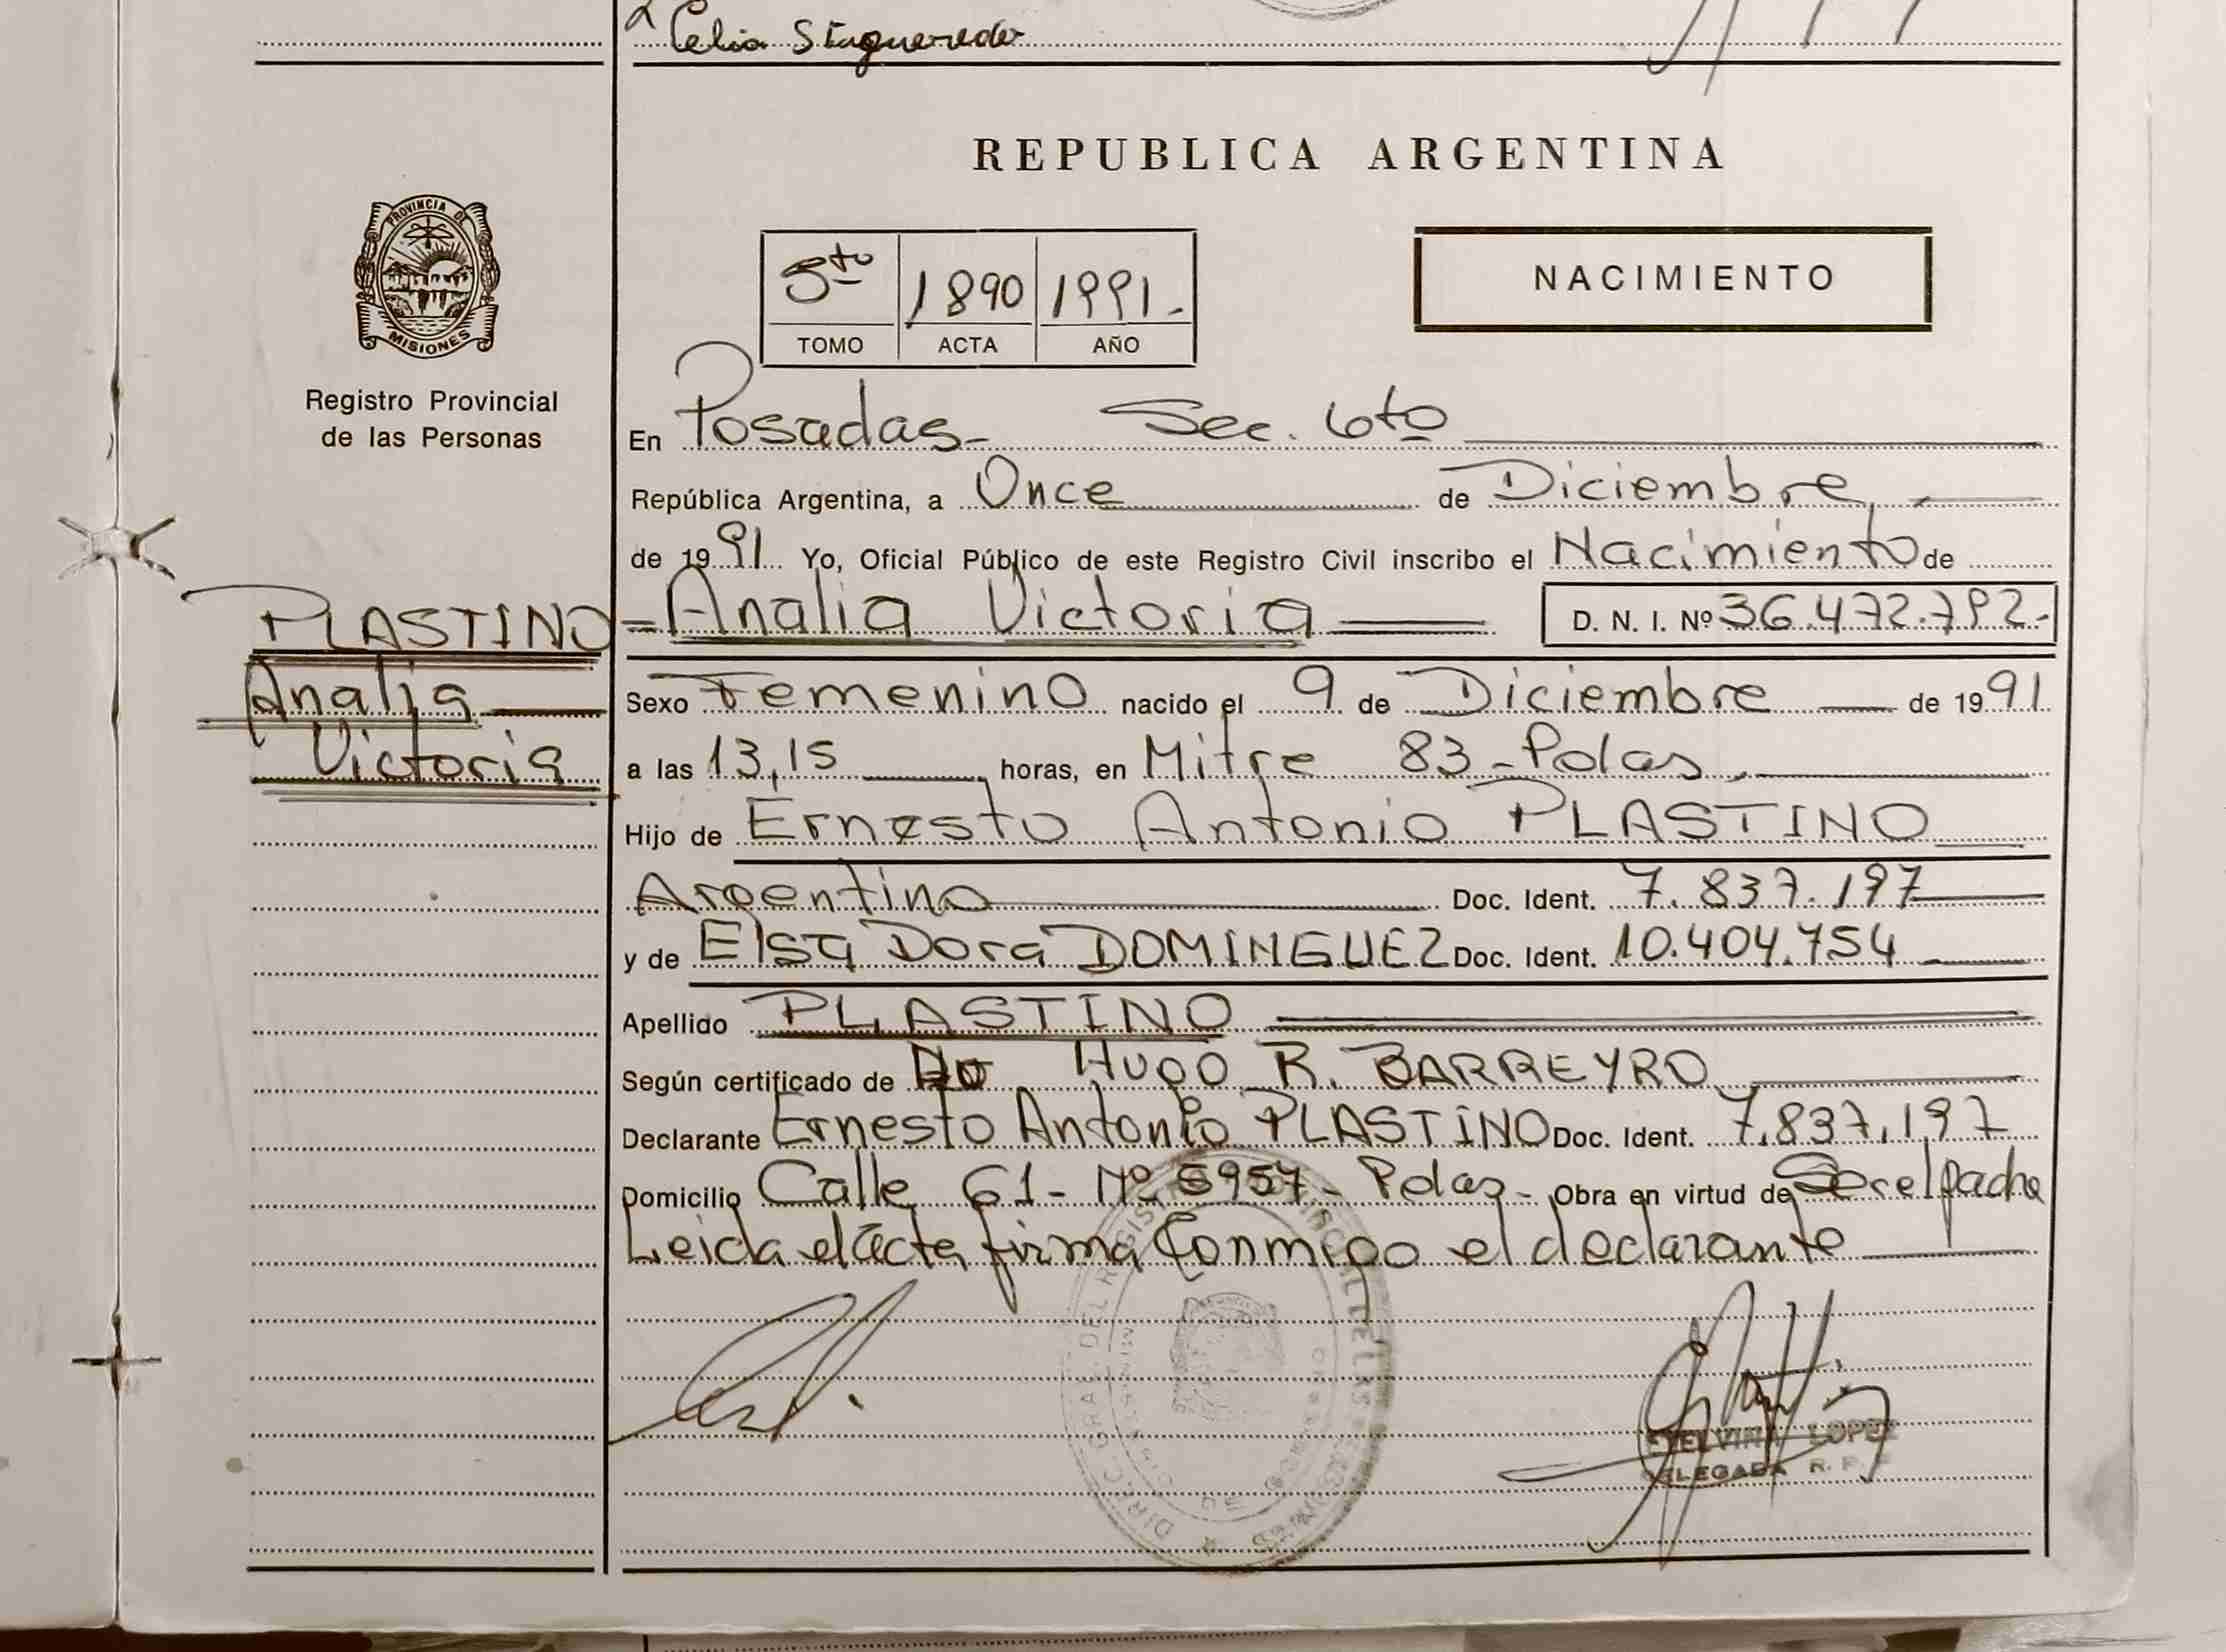 Celia
REPUBLICA ARGENTINA
PROVINCIA DE
MISIONES
Registro Provincial
de las Personas
5to 1890 1991.-
TOMO ACTA AÑO
NACIMIENTO
En Posadas- Sec. 6to
República Argentina, a Once de Diciembre
de 1991 Yo, Oficial Público de este Registro Civil inscribo el Nacimiento de
PLASTINO = Analia Victoria D. N. I. Nº 36.472.792.-
Analia Sexo Femenino nacido el 9 de Diciembre de 1991
Victoria a las 13,15 horas, en Mitre 83-Pdas,
Hijo de Ernesto Antonio PLASTINO
Argentino Doc. Ident. 7.837.197
y de Elsa Dora DOMINGUEZ Doc. Ident. 10.404.754
Apellido PLASTINO
Según certificado de Hugo R. BARREYRO
Declarante Ernesto Antonio PLASTINO Doc. Ident. 7.837.197
Domicilio Calle 61- Nº 5957- Pdas- Obra en virtud de Ser el padre
Leida el acta firma Conmigo el declarante
LOPEZ
DELEGADA R. P.